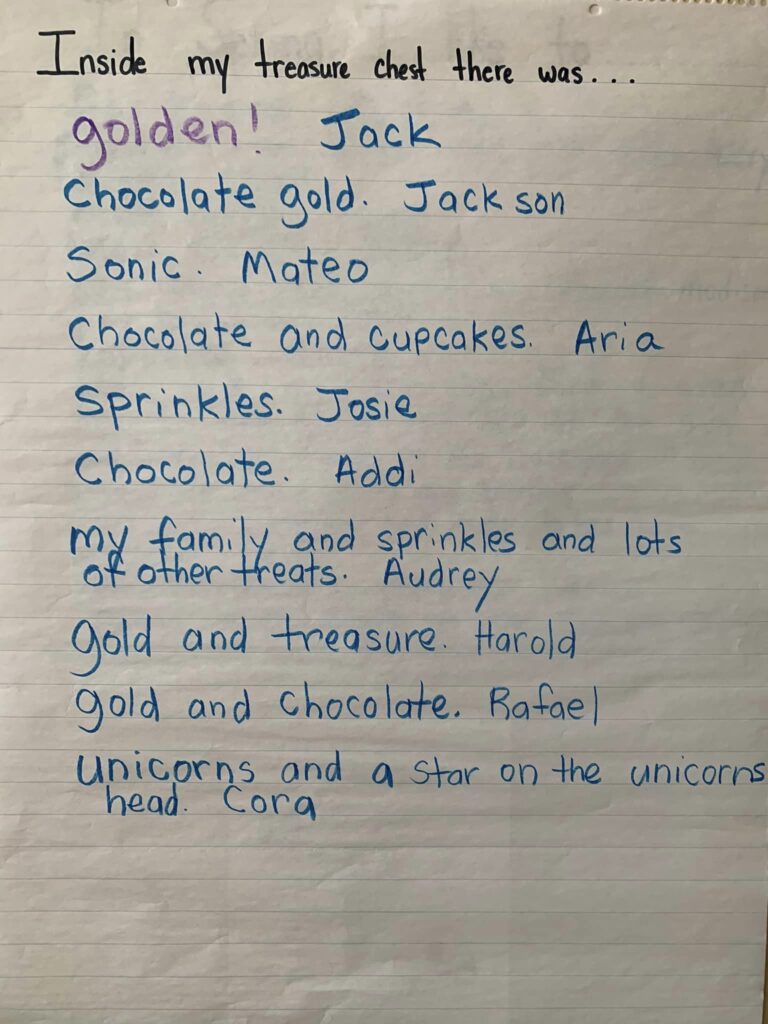 Inside my treasure chest there was...
golden! Jack
Chocolate gold. Jackson
Sonic. Mateo
Chocolate and cupcakes. Aria
Sprinkles. Josie
Chocolate. Addi
my family and sprinkles and lots
of other treats. Audrey
gold and treasure. Harold
gold and chocolate. Rafael
unicorns and a star on the unicorns
head. Cora